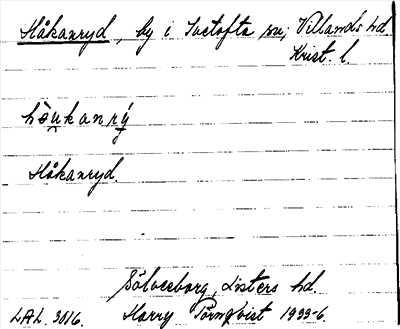 Håkanryd, by i Ivetofta sn; Villands hd
Krist. l.
hòu̯kanrý
Håkanryd.
Sölvesborg, Listers hd.
LAL. 3016. Harry Törnqvist 1933-6.